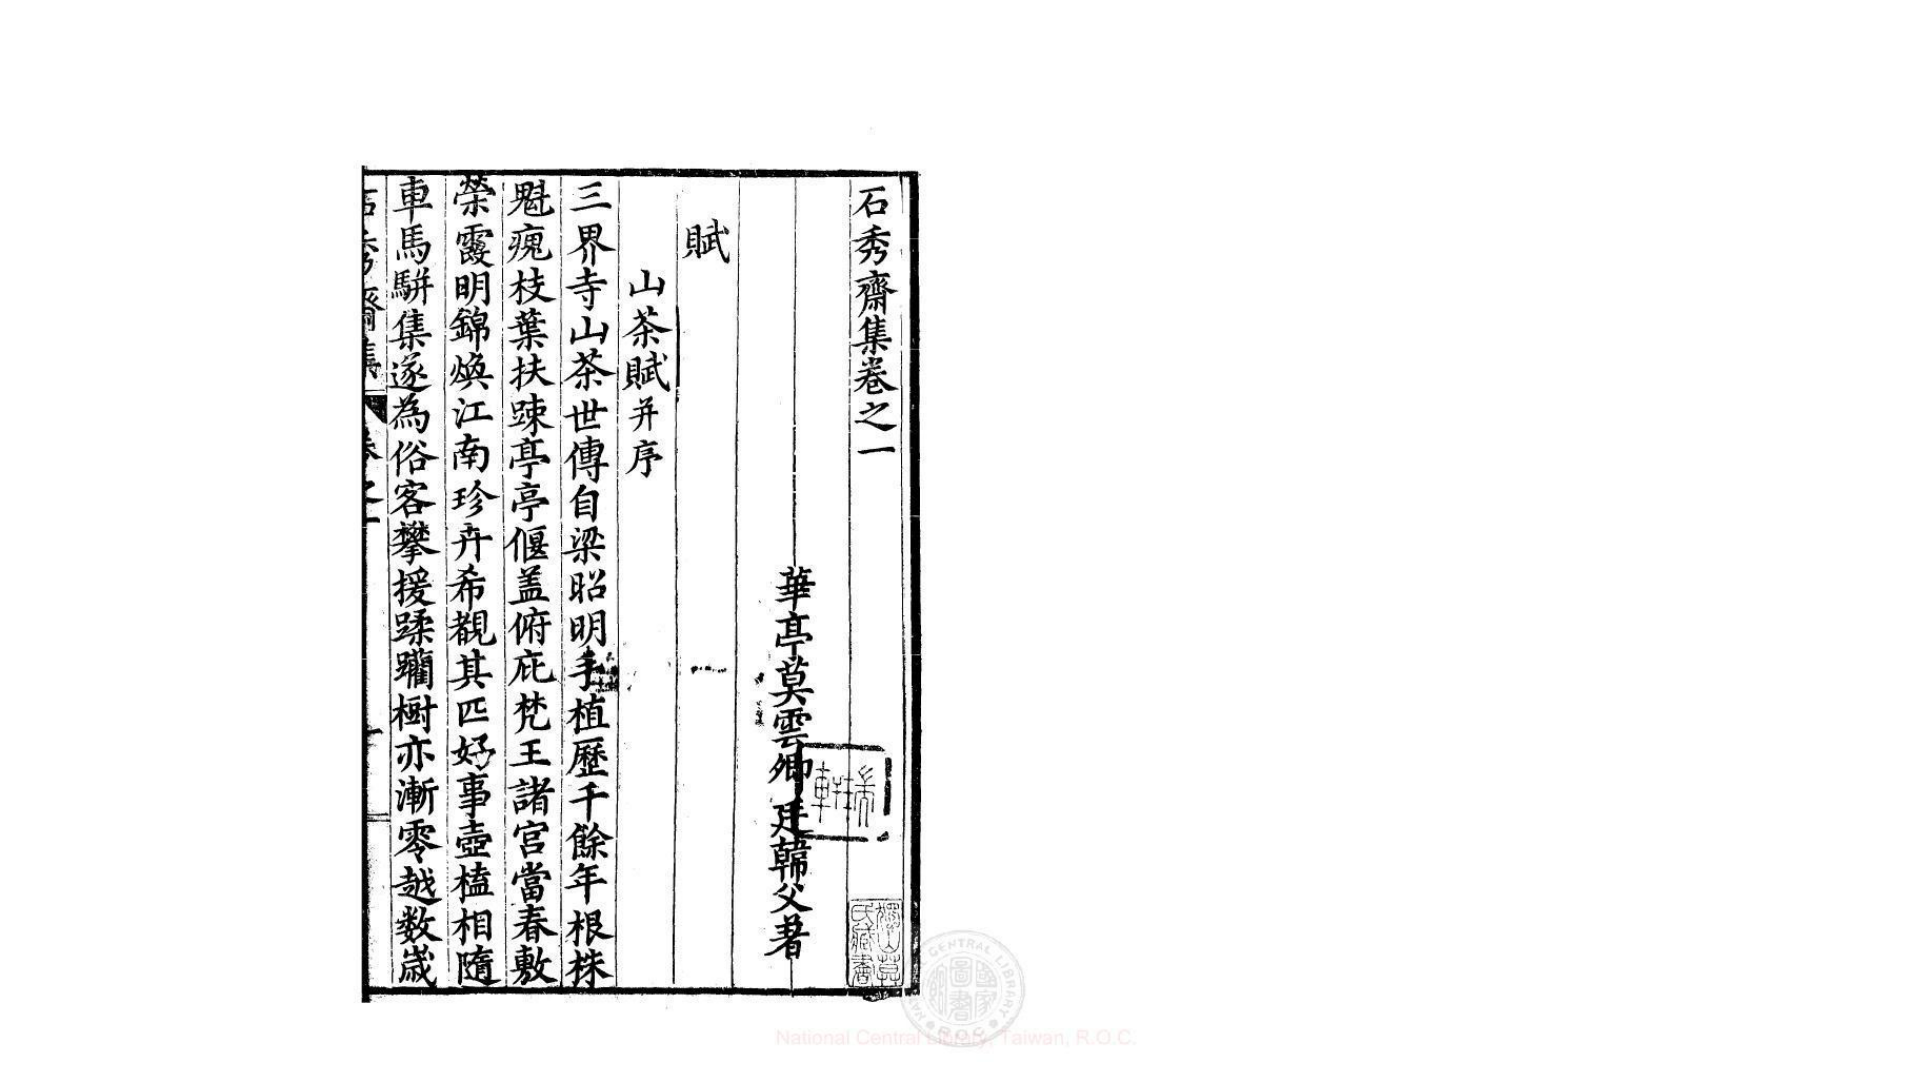 石秀齋集卷之一
華亭莫雲卿廷韓父著
賦
山茶賦并序
三界寺山茶世傳自梁昭明手植歷千餘年根株
魁瘣枝葉扶踈亭亭偃盖俯庇梵王諸宫當春敷
榮霞明錦煥江南珍卉希覩其匹好事壺榼相隨
車馬駢集遂為俗客攀援蹂躪樹亦漸零越数歲
石秀齋集 卷之一
National Central Library, Taiwan, R.O.C.